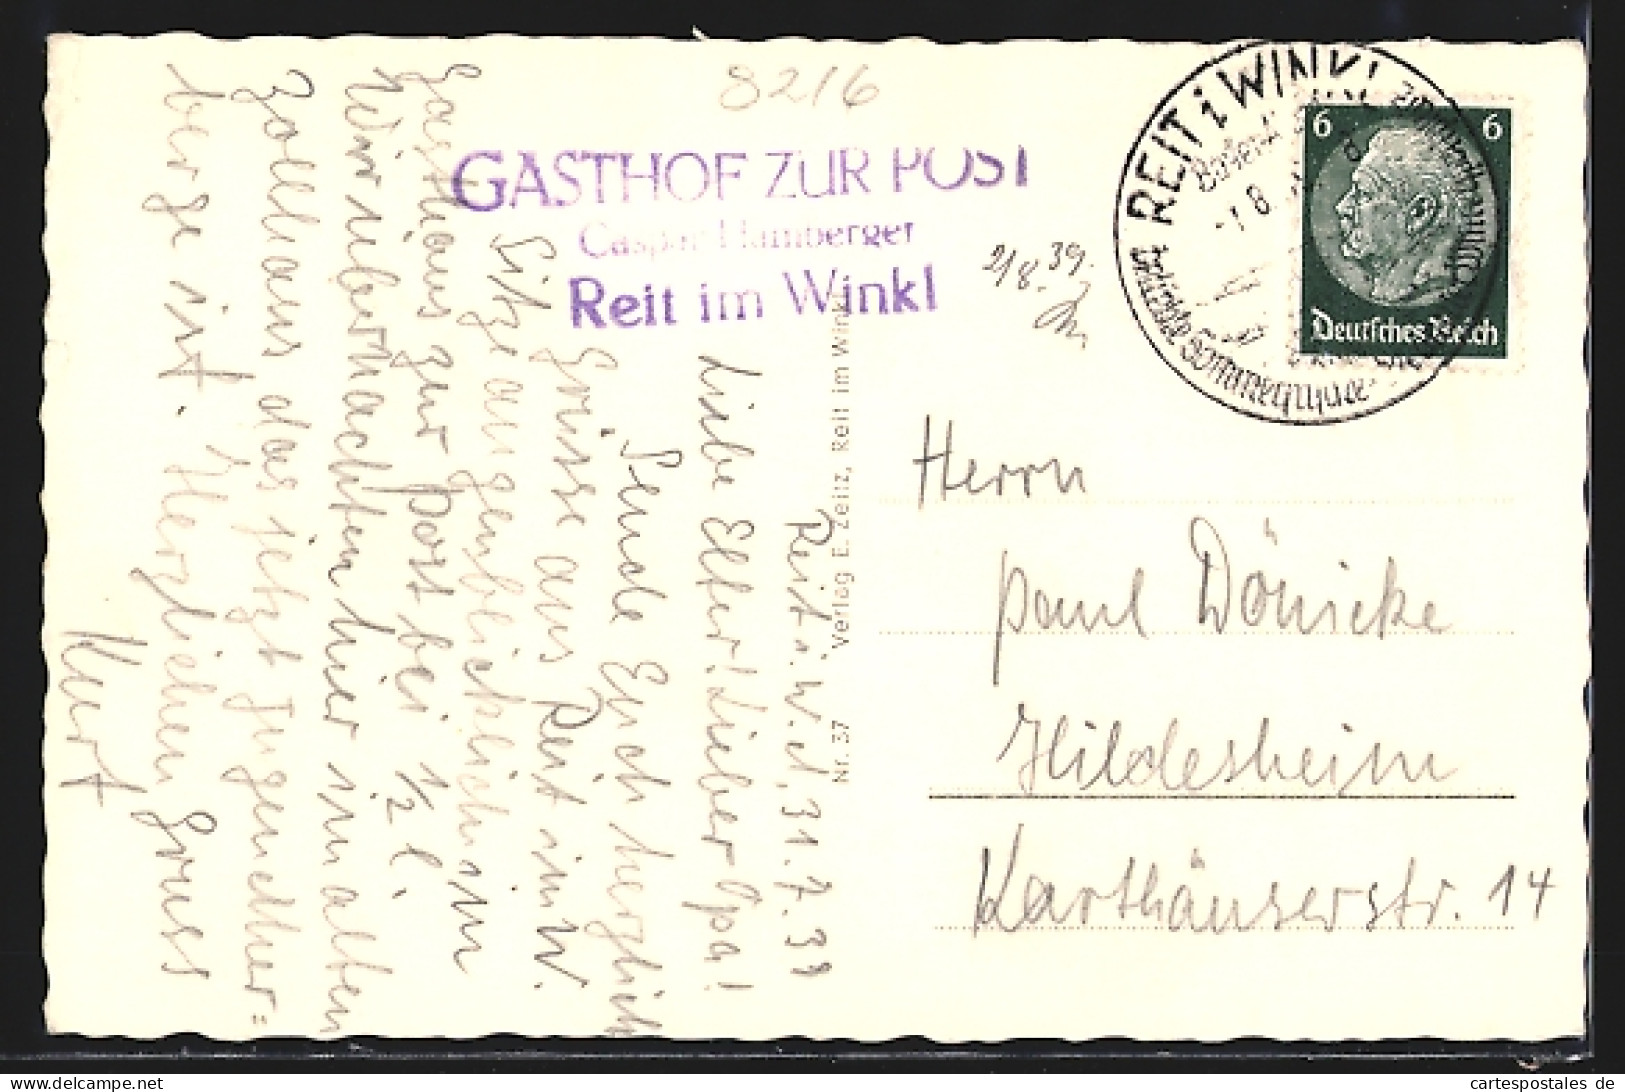 8216
GASTHOF ZUR POST
Caspar Hamberger
Reit im Winkl
2/8. 39.
REIT i WINKL
-1.8
6 6
Deutsches Reich
Nr. 37 Verlag E. Zeitz, Reit im Winkl
Reit i. W. d. 31. 7. 39
Liebe Eltern! Lieber Opa!
Sende Euch herzlich
Grüsse aus Reit im W.
Sitze augenblicklich im
Gasthaus zur Post bei 1/2 l.
Wir übernachten hier im alten
Zollhaus das jetzt Jugendher=
berge ist. Herzlichen Gruss
Kurt
Herrn
Paul Dönicke
Hildesheim
Karthäuserstr. 14
cartespostales de